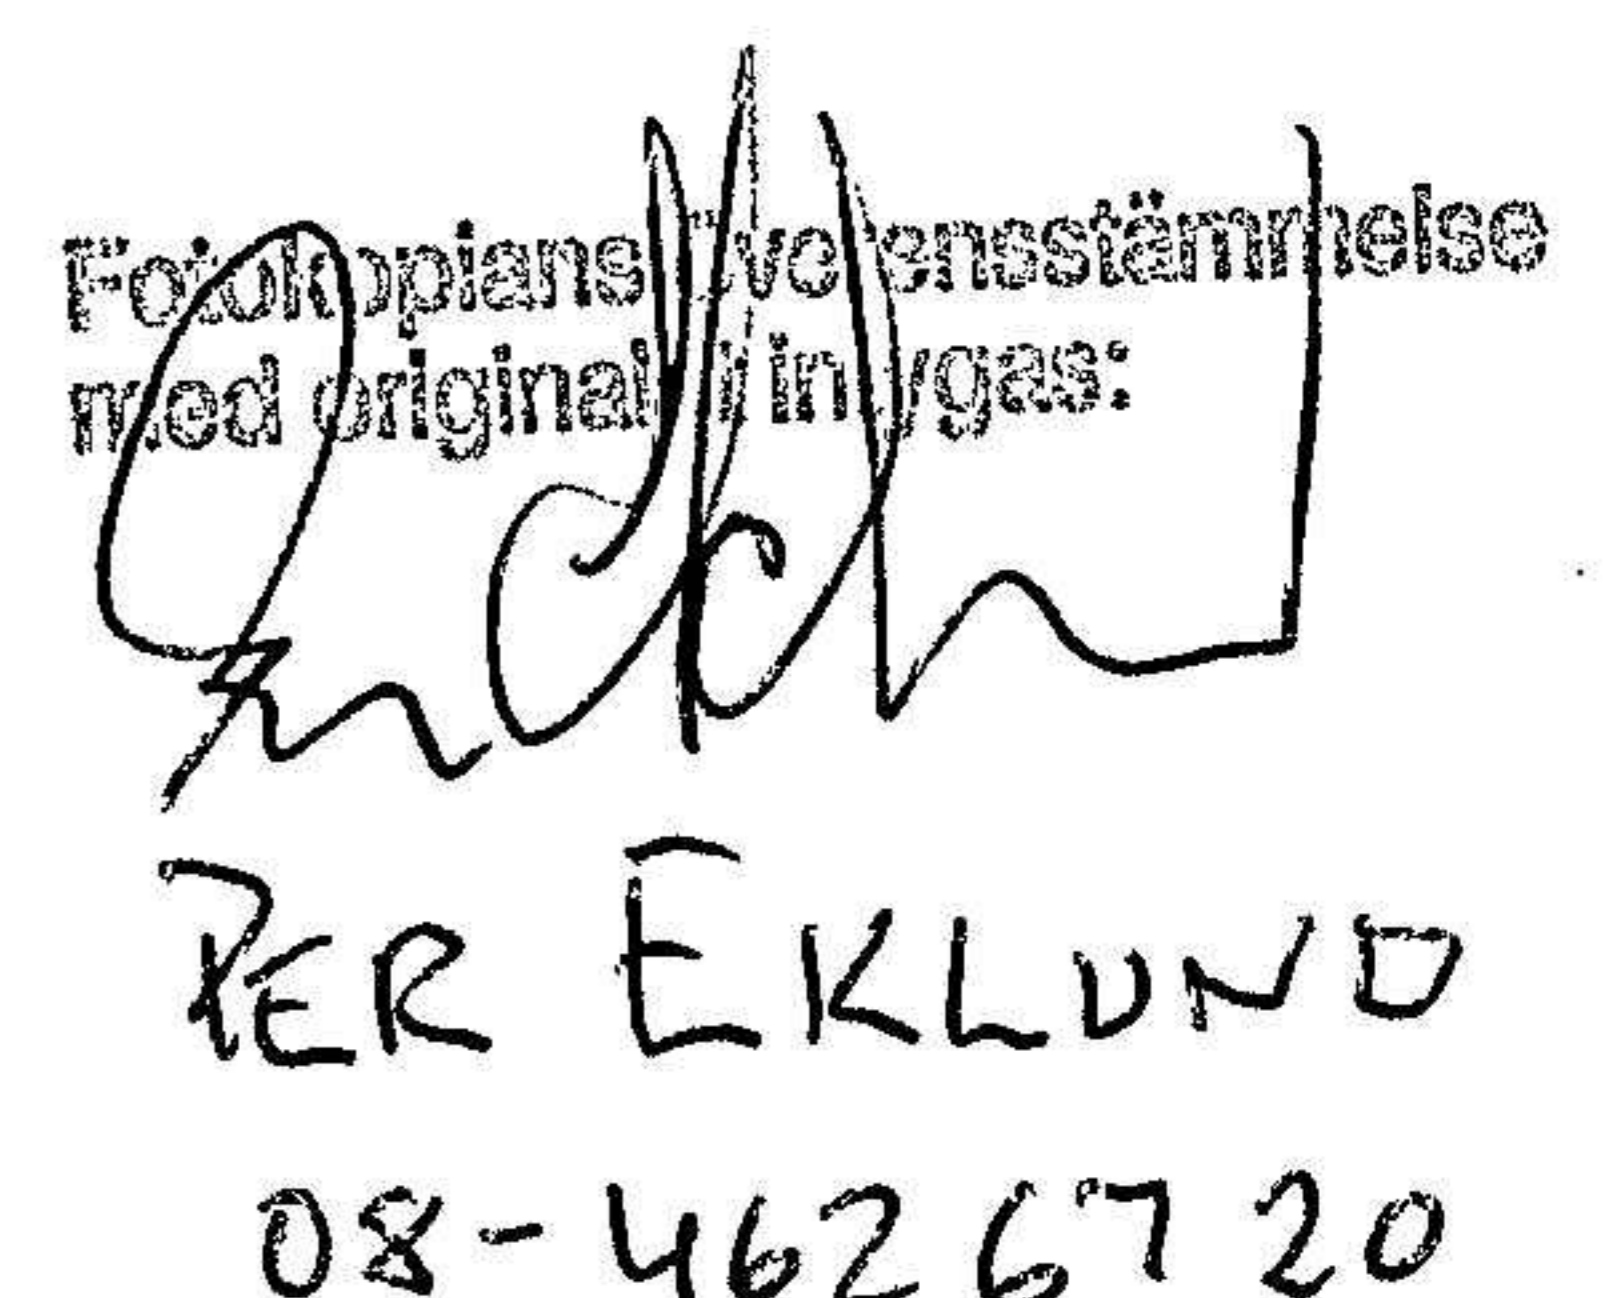 Fotokopians överensstämmelse
med originalet intygas:
PER EKLUND
08-462 67 20